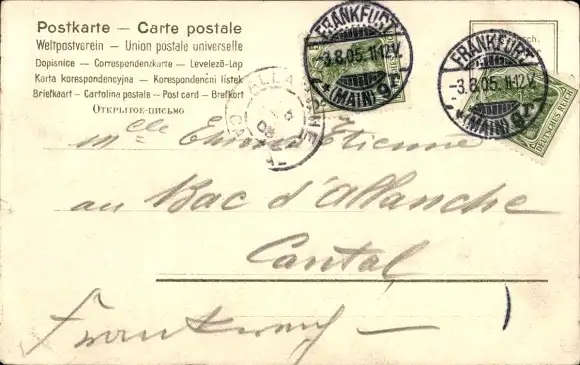 Postkarte — Carte postale
Weltpostverein — Union postale universelle
Dopisnice — Correspondenzkarte — Levelező-Lap
Karta korespondencyjna — Korespondenční lístek
Briefkaart — Cartolina postale — Post card — Brefkort
Открытое-письмо
FRANKFURT
-3.8.05.11-12V.
*(MAIN) 9r*
FRANKFURT
-3.8.05.11-12V.
*(MAIN) 9r*
DEUTSCHES REICH
Melle Emma Etienne
au Bac d'allanche
Cantal